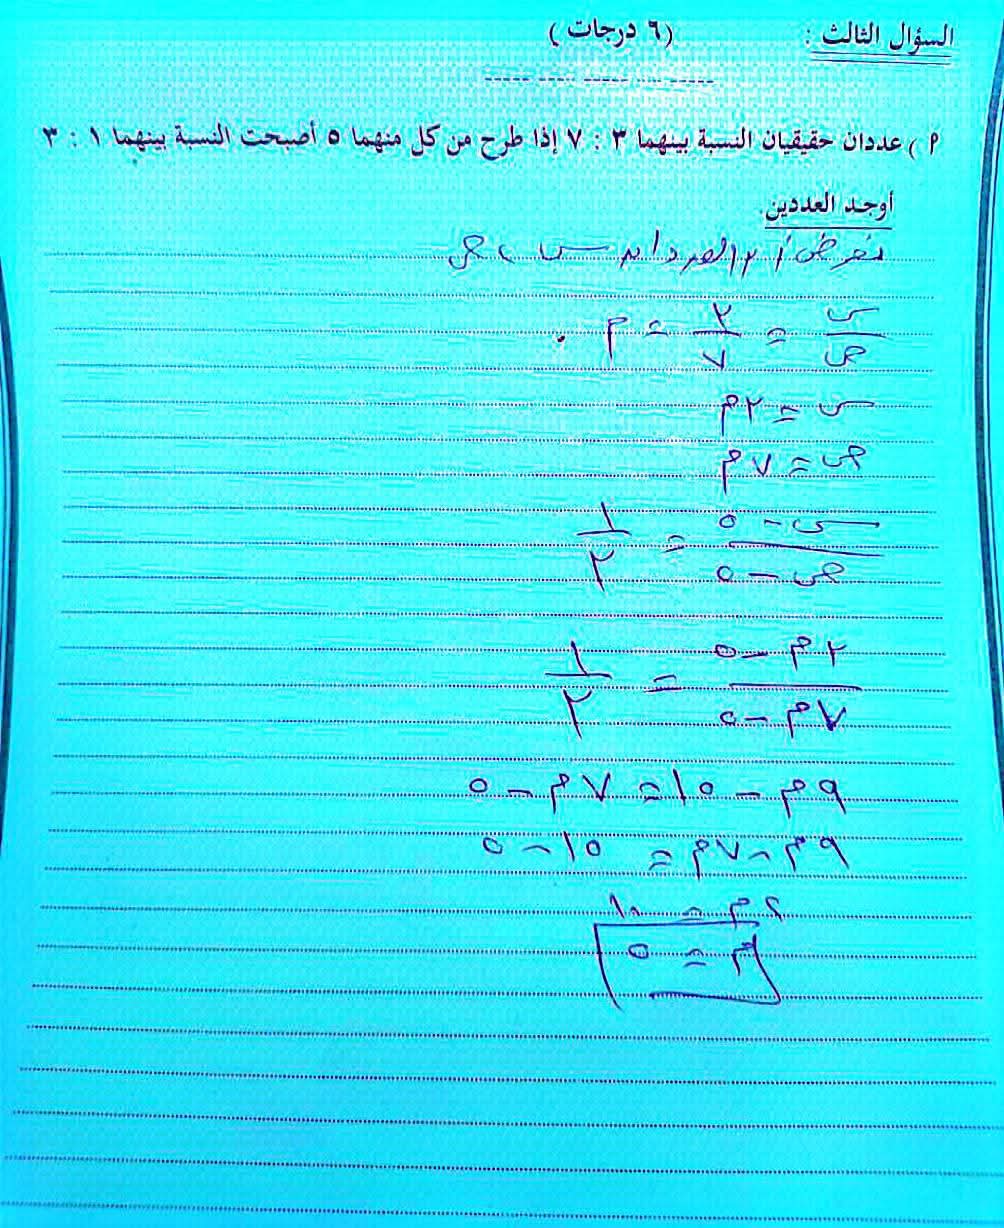 السؤال الثالث : (٦ درجات)
٩) عددان حقيقيان النسبة بينهما ٣ : ٧ إذا طرح من كل منهما ٥ أصبحت النسبة بينهما ١ : ٣
أوجد العددين.
نفرض أن العددان س ، ص
س/ص = ٣/٧ = م
س = ٣م
ص = ٧م
(س - ٥)/(ص - ٥) = ١/٣
(٣م - ٥)/(٧م - ٥) = ١/٣
٩م - ١٥ = ٧م - ٥
٩م - ٧م = ١٥ - ٥
٢م = ١٠
م = ٥